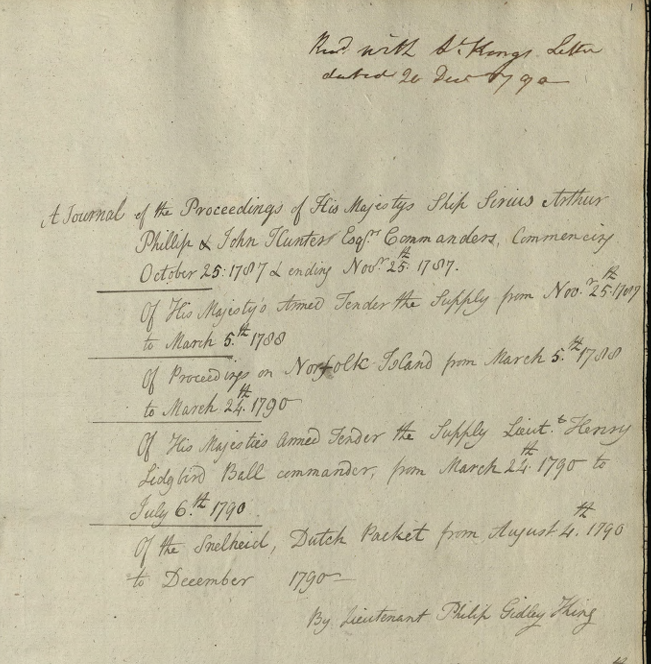 Recd. with Lt. Kings Letter
dated 20 Decr 1790
A Journal of the Proceedings of His Majestys Ship Sirius Arthur
Phillip & John Hunter Esqrs. Commanders, Commencing
October 25: 1787 & ending Novr. 25th 1787.
Of His Majesty's Armed Tender the Supply from Novr. 25th: 1787
to March 5.th 1788
Of Proceedings on Norfolk Island from March 5.th 1788
to March 24th. 1790
Of His Majesties Armed Tender the Supply Lieut.t Henry
Lidgbird Ball commander, from March 24th. 1790 to
July 6.th 1790
Of the Snelheid, Dutch Packet from August 4.th 1790
to December 1790
By Lieutenant Philip Gidley King